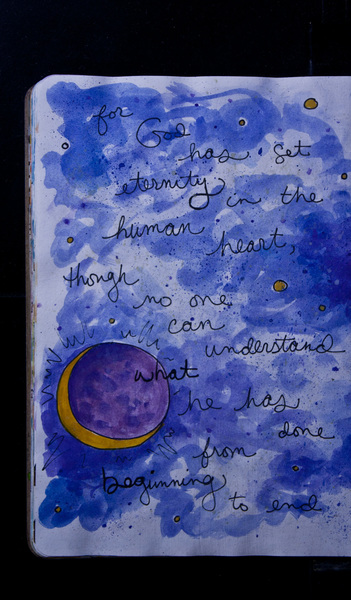 for
God
has set
eternity in the
human heart,
though
no one
can
understand
what
he has
done
from
beginning
to end